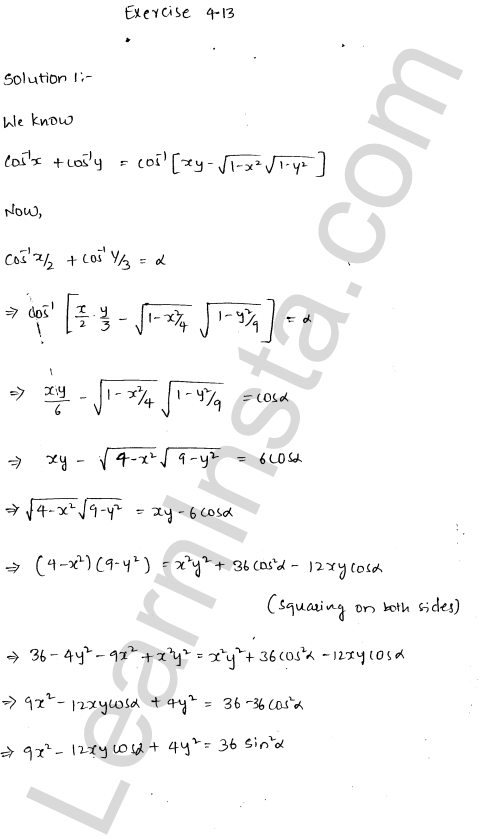 Exercise 4.13
Solution 1:-
We know
cos⁻¹x + cos⁻¹y = cos⁻¹[xy - √(1-x²) √(1-y²)]
Now,
cos⁻¹x/2 + cos⁻¹y/3 = α
⇒ cos⁻¹[x/2 · y/3 - √(1-x²/4) √(1-y²/9)] = α
⇒ xy/6 - √(1-x²/4) √(1-y²/9) = cosα
⇒ xy - √(4-x²) √(9-y²) = 6cosα
⇒ √(4-x²) √(9-y²) = xy-6cosα
⇒ (4-x²)(9-y²) = x²y² + 36cos²α - 12xycosα
(squaring on both sides)
⇒ 36-4y²-9x²+x²y² = x²y²+36cos²α-12xycosα
⇒ 9x²-12xycosα+4y² = 36-36cos²α
⇒ 9x²-12xycosα+4y² = 36 sin²α
LearnInsta.com